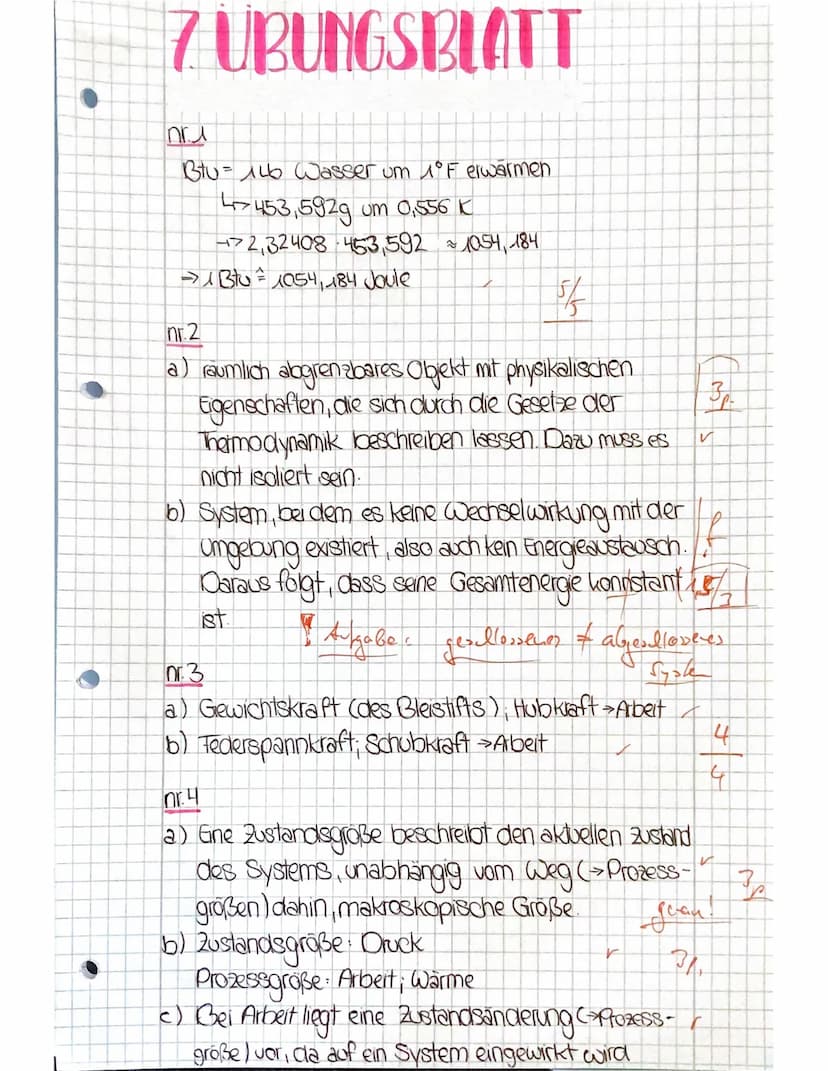 7. ÜBUNGSBLATT
nr.1
Btu = 1lb Wasser um 1°F erwärmen
↳ 453,592g um 0,556 K
→ 2,32408 · 453,592 ≈ 1054,184
→ 1 Btu ≙ 1054,184 Joule
5/5
nr.2
a) räumlich abgrenzbares Objekt mit physikalischen
Eigenschaften, die sich durch die Gesetze der
3p.
Thermodynamik beschreiben lassen. Dazu muss es ✓
nicht isoliert sein.
b) System, bei dem es keine Wechselwirkung mit der
Umgebung existiert, also auch kein Energieaustausch.
Daraus folgt, dass seine Gesamtenergie konnstant
ist.
! Aufgabe: geschlossenes ≠ abgeschlossenes
System
nr.3
a) Gewichtskraft (des Bleistifts); Hubkraft → Arbeit
b) Federspannkraft; Schubkraft → Arbeit
4/4
nr.4
a) Eine Zustandsgröße beschreibt den aktuellen Zustand
des Systems, unabhängig vom Weg (→ Prozess- ✓
3p
größen) dahin, makroskopische Größe.
genau!
b) Zustandsgröße: Druck ✓
3p.
Prozessgröße: Arbeit; Wärme
c) Bei Arbeit liegt eine Zustandsänderung (→ Prozess-
größe) vor, da auf ein System eingewirkt wird